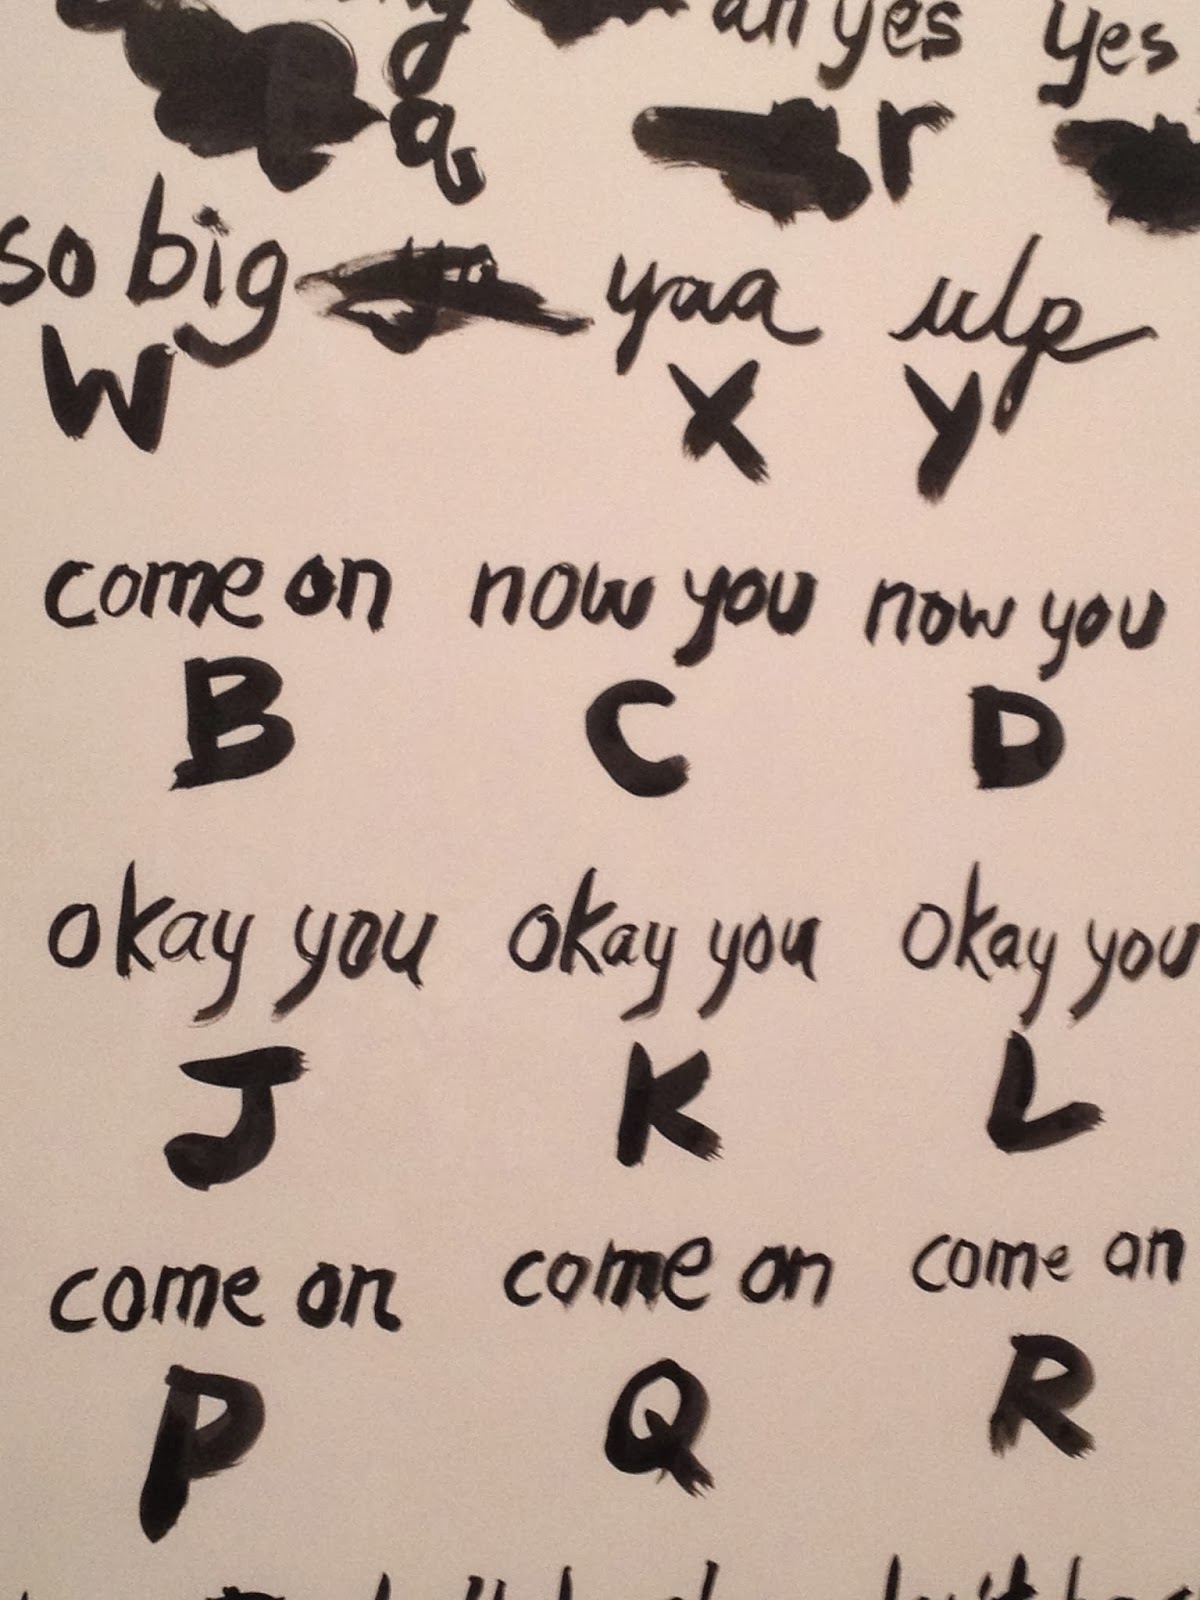 ah yes yes
q r
so big yaa ulp
W X Y
come on now you now you
B C D
okay you okay you okay you
J K L
come on come on come on
P Q R